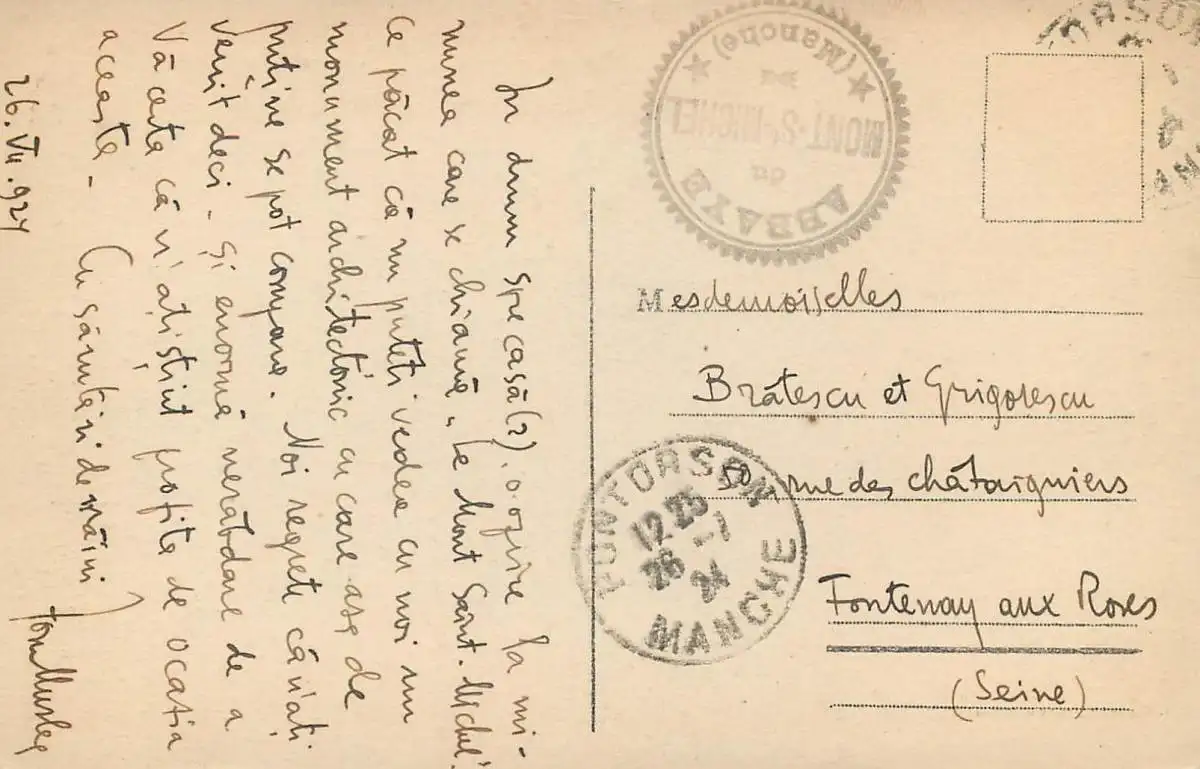 In drum spre casă(?). o oprire la mi-
nunea care se chiamă „Le Mont Saint-Michel"
Ce păcat că nu puteți vedea cu noi un
monument architectonic cu care așa de
puține se pot compara. Noi regretă că n'ați
venit deci - și enormă nerăbdare de a
Vă certa că n'ați știut profita de ocazia
aceasta -
Cu sărutări de mâini
26.VII.924
ABBAYE
du
MONT-St-MICHEL
(Manche)
Mesdemoiselles
Brătescu et Grigorescu
50, rue des châtaigniers
Fontenay aux Roses
(Seine)
PONTORSON
12 25
26 -7
24
MANCHE